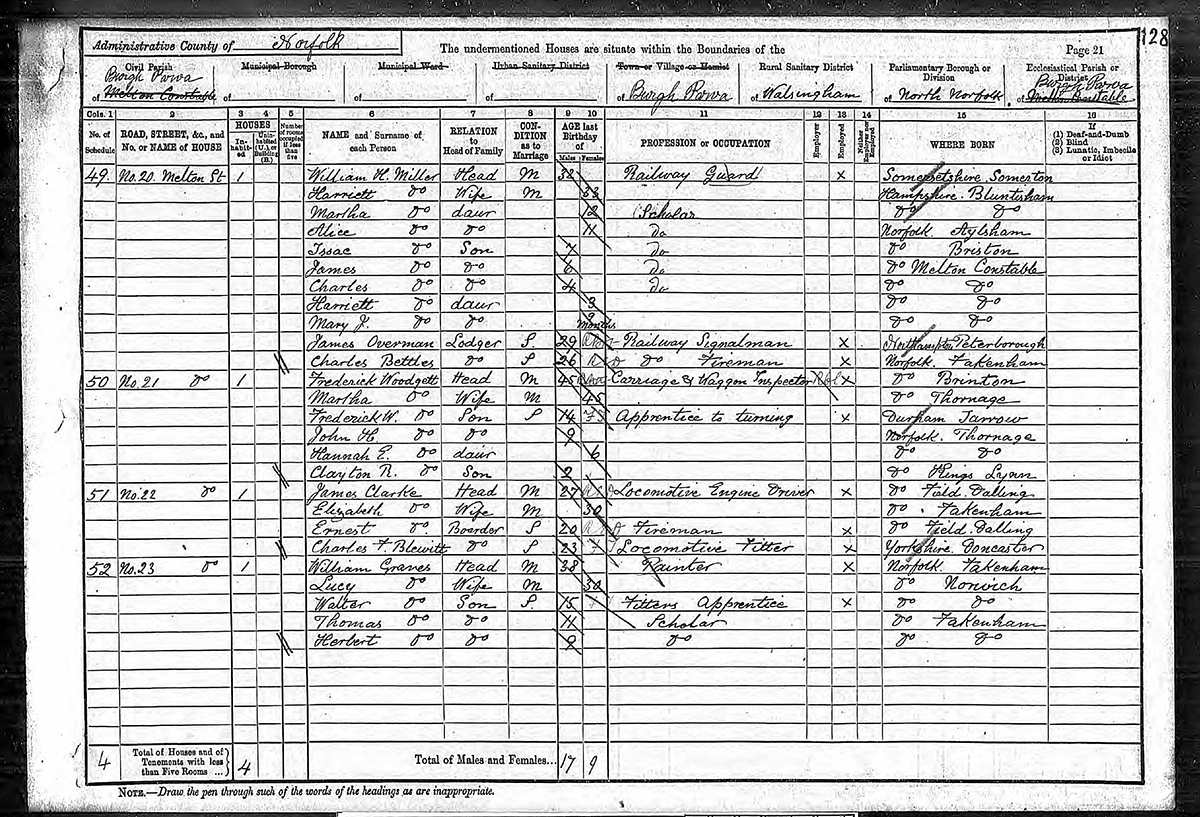 128
Administrative County of Norfolk
The undermentioned Houses are situate within the Boundaries of the
Page 21
Civil Parish
Burgh Parva
of Melton Constable
Municipal Borough
of
Municipal Ward
of
Urban Sanitary District
of
Town or Village or Hamlet
of Burgh Parva
Rural Sanitary District
of Walsingham
Parliamentary Borough or Division
of North Norfolk
Ecclesiastical Parish or District
Burgh Parva
of Melton Constable
Cols. 1 2 3 4 5 6 7 8 9 10 11 12 13 14 15 16
No. of Schedule
ROAD, STREET, &c., and No. or NAME of HOUSE
HOUSES
In-habit-ed
Unin-habited (U.) or Building (B.)
Number of rooms occupied if less than five
NAME and Surname of each Person
RELATION to Head of Family
CON-DITION as to Marriage
AGE last Birthday of
Males Females
PROFESSION or OCCUPATION
Employer
Employed
Neither Employer nor Employed
WHERE BORN
If
(1) Deaf-and-Dumb
(2) Blind
(3) Lunatic, Imbecile or Idiot
49. No. 20 Melton St 1 William H. Miller Head M 32 Railway Guard x Somersetshire Somerton
Harriett Do Wife M 33 Hampshire. Bluntisham
Martha Do daur 12 Scholar Do Do
Alice Do Do 11 Do Norfolk Aylsham
Issac Do Son 7 Do Do Briston
James Do Do 6 Do Do Melton Constable
Charles Do Do 4 Do Do Do
Harriett Do daur 3 Do Do
Mary J. Do Do months Do Do
James Overman Lodger S 29 Railway Signalman x Northampton Peterborough
Charles Bettles Do S 26 Do Fireman x Norfolk. Fakenham
50 No. 21 Do 1 Frederick Woodgett Head M 45 Carriage & Waggon Inspector x Do Brinton
Martha Do Wife M 45 Do Thornage
Frederick W. Do Son S 14 Apprentice to turning x Durham Jarrow
John H. Do Do 9 Norfolk. Thornage
Hannah E. Do daur 6 Do Do
Clayton R. Do Son 2 Do Kings Lynn
51 No. 22 Do 1 James Clarke Head M 27 Locomotive Engine Driver x Do Field Dalling
Elizabeth Do Wife M 30 Do Fakenham
Ernest Do Boarder S 20 Do Fireman x Do Field Dalling
Charles F. Blewitt Do S 23 Locomotive Fitter x Yorkshire. Doncaster
52 No. 23 Do 1 William Graves Head M 38 Painter x Norfolk. Fakenham
Lucy Do Wife M 30 Do Norwich
Walter Do Son S 15 Fitters Apprentice x Do Do
Thomas Do Do 11 Scholar Do Fakenham
Herbert Do Do 9 Do Do Do
4 Total of Houses and of Tenements with less than Five Rooms ... 4 Total of Males and Females... 17 9
NOTE.—Draw the pen through such of the words of the headings as are inappropriate.